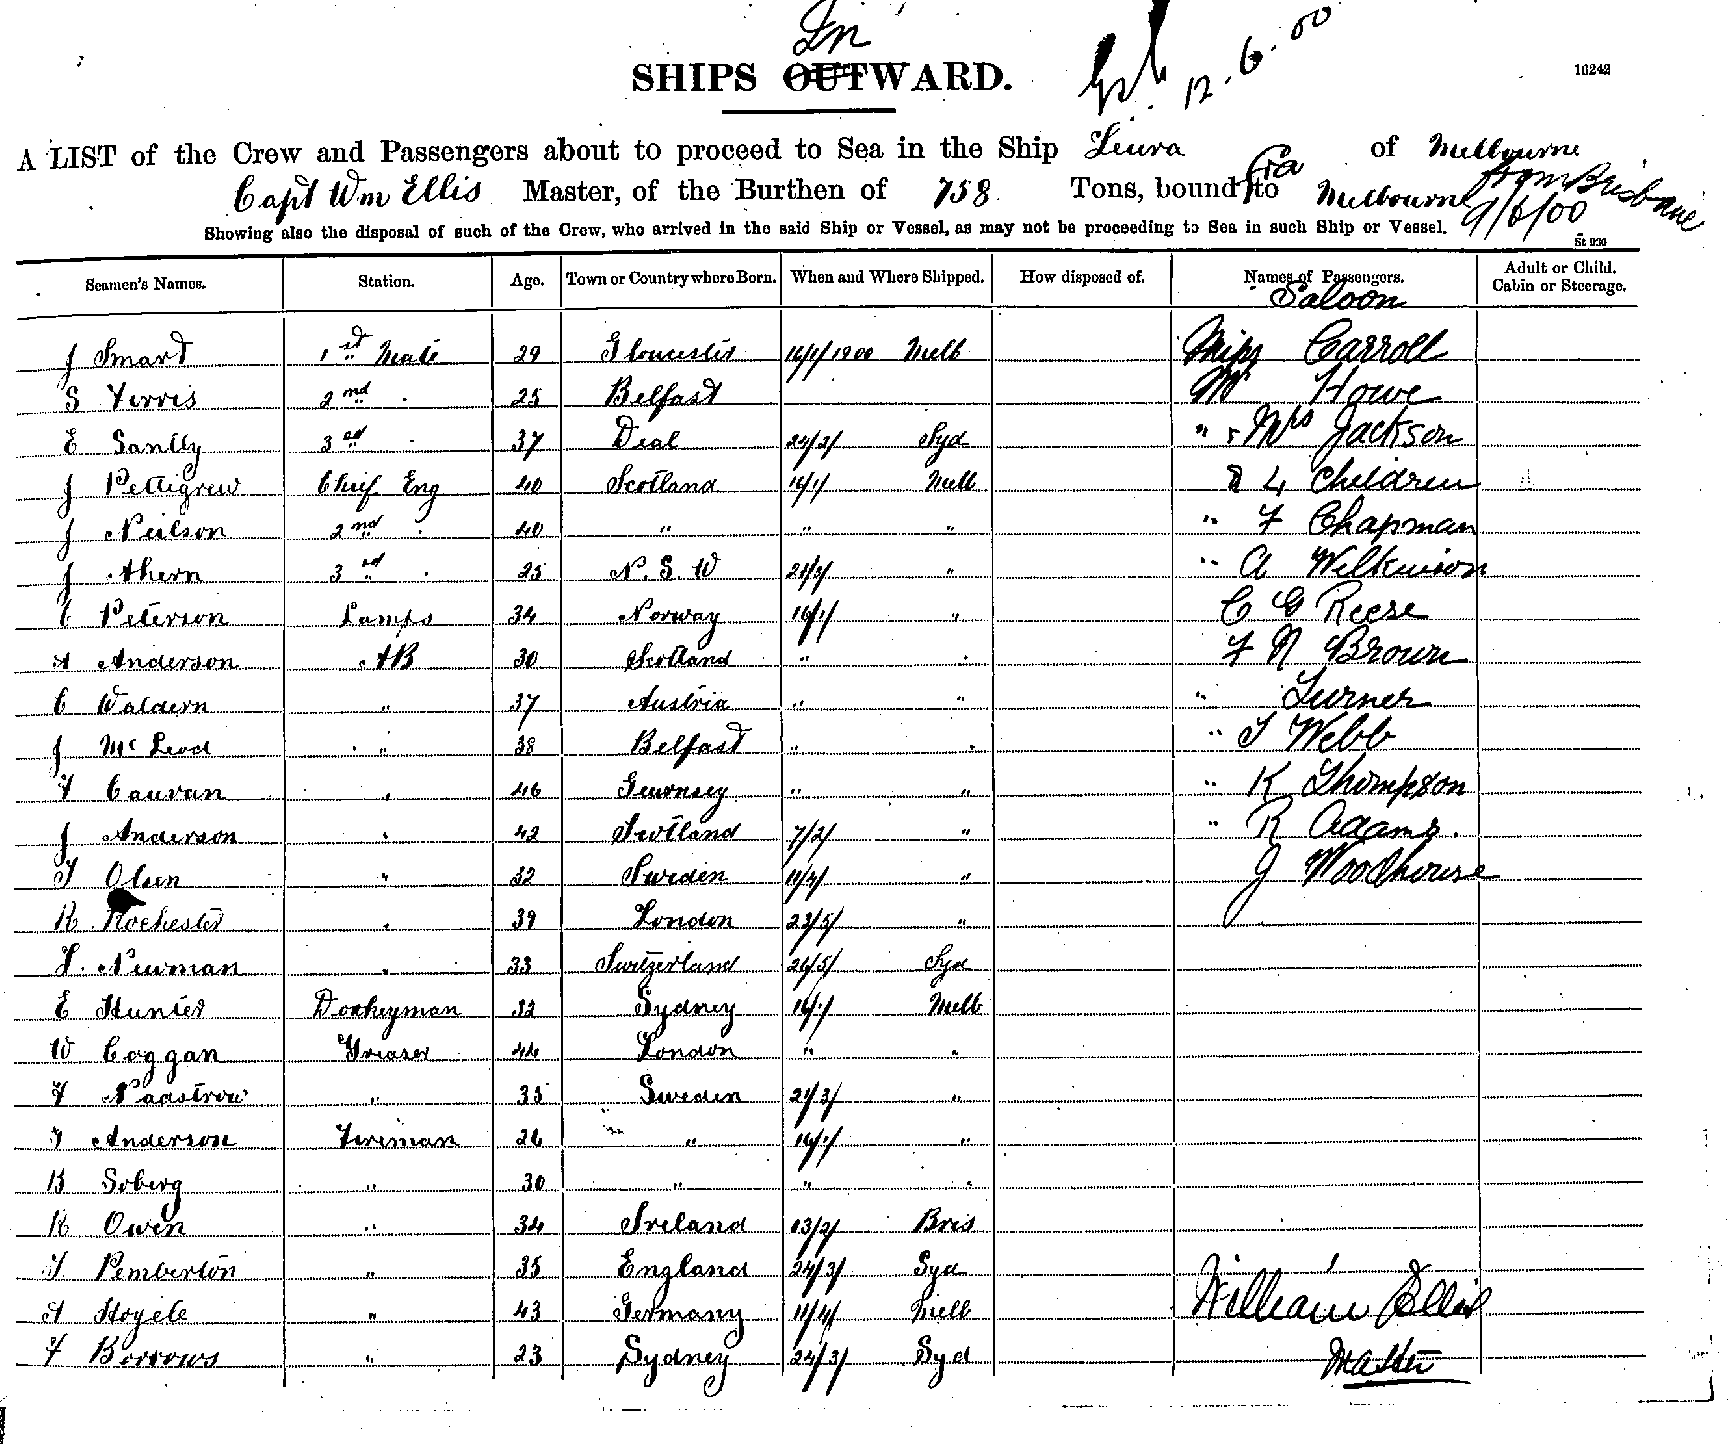 In
SHIPS OUTWARD.
12.6.00
10242
A LIST of the Crew and Passengers about to proceed to Sea in the Ship Leura of Melbourne
Capt Wm Ellis Master, of the Burthen of 758 Tons, bound to Melbourne from Brisbane
9/6/00
Showing also the disposal of such of the Crew, who arrived in the said Ship or Vessel, as may not be proceeding to Sea in such Ship or Vessel.
Seamen's Names. Station. Age. Town or Country where Born. When and Where Shipped. How disposed of. Names of Passengers. Adult or Child. Cabin or Steerage.
Saloon
J Smart 1st Mate 29 Gloucester 16/1/1900 Melb Miss Carroll
S Ferris 2nd " 25 Belfast Mr Howe
E Santly 3rd " 37 Deal 24/2/ Syd " & Mrs Jackson
J Pettigrew Chief Eng 40 Scotland 16/1/ Melb & 4 Children
J Neilson 2nd " 40 " " " " F Chapman
J Ahern 3rd " 25 N.S.W 21/3/ " " A Wilkinson
C Peterson Lamps 34 Norway 16/1/ " C G Reese
A Anderson AB 30 Scotland " " F N Brown
C Waldern " 37 Austria " " " Turner
J McLeod " 38 Belfast " " " T Webb
F Cauvan " 46 Guernsey " " " K Thompson
J Anderson " 42 Scotland 7/2/ " " R Adams.
T Olsen " 32 Sweden 11/4/ " J Woodhouse
R Rochester " 39 London 23/5/ "
F. Newman " 33 Switzerland 26/5/ Syd
E Hunter Donkeyman 32 Sydney 16/1/ Melb
W Coggan Greaser 44 London " "
F Nadstrow " 35 Sweden 21/3/ "
T Anderson Fireman 26 " 16/1/ "
B Soberg " 30 " " "
R Owen " 34 Ireland 13/2/ Bris
T Pemberton " 35 England 24/3/ Syd
A Hoyele " 43 Germany 11/4/ Melb William Ellis
F Borrows " 23 Sydney 24/3/ Syd Master